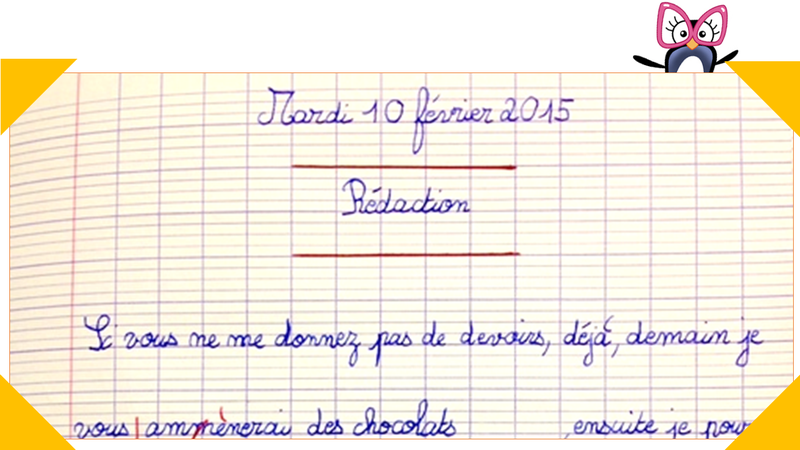 Mardi 10 février 2015
Rédaction
Si vous ne me donnez pas de devoirs, déjà, demain je
vous ammènerai des chocolats , ensuite je